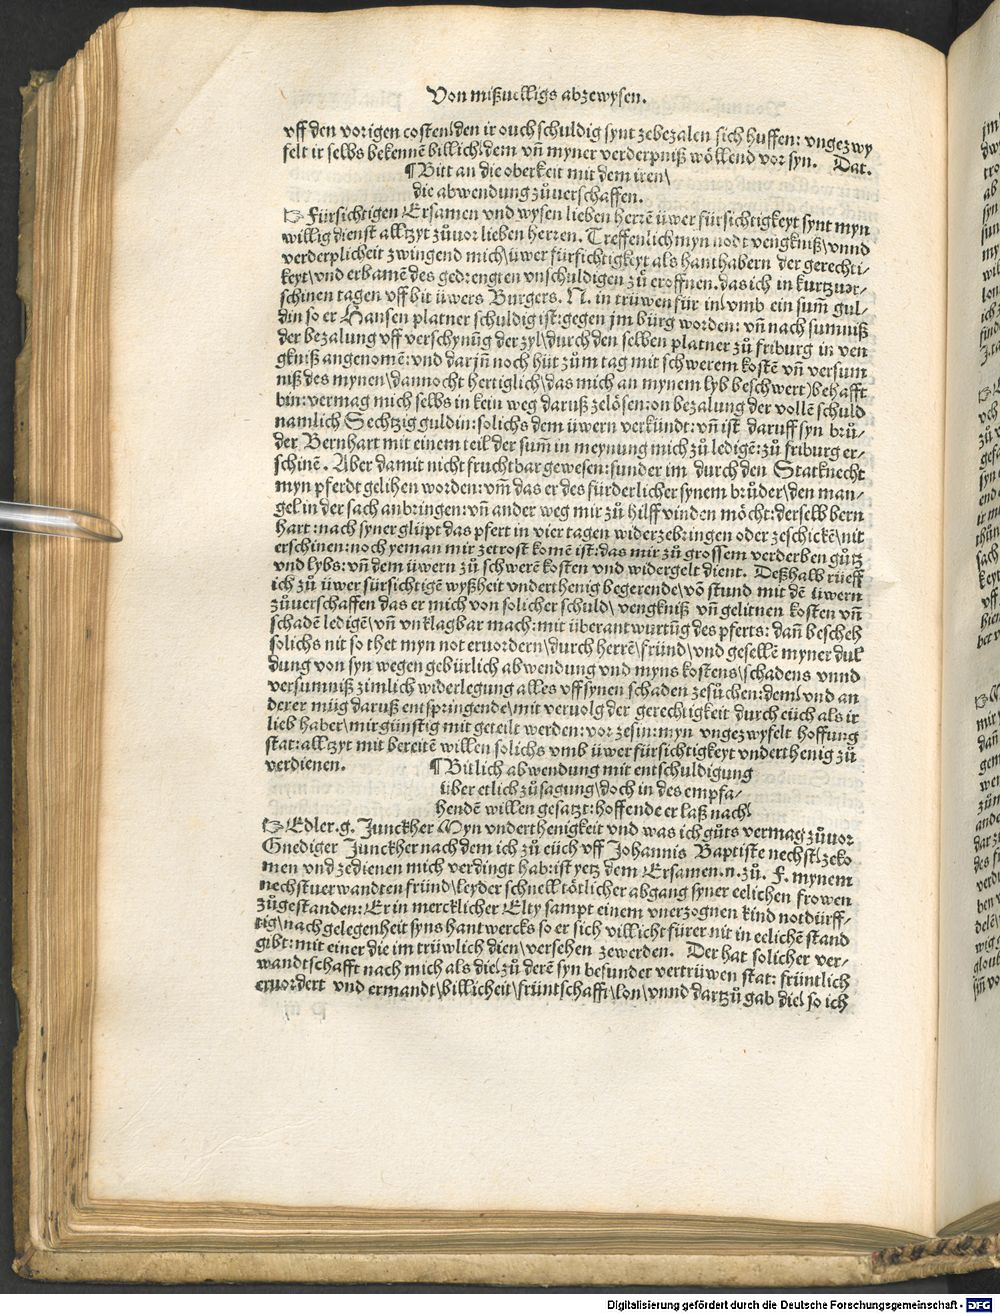 Von mißuelligs abzewysen.
vff den vorigen costen\den ir ouch schuldig synt zebezalen sich huffen: vngezwy
felt ir selbs bekennē billich\dem vñ myner verderpniß wöllend vor syn. Dat.
¶ Bitt an die oberkeit mit dem iren\
die abwendung zůuerschaffen.
☞ Fürsichtigen Ersamen vnd wysen lieben herrē üwer fürsichtigkeyt synt myn
willig dienst alltzyt zůuor lieben herren. Treffenlich myn nodt vengkniß\vnnd
verderplicheit zwingend mich\üwer fürsichtigkeyt als hanthabern der gerechti⸗
keyt\vnd erbamē des gedrengten vnschuldigen zů eroffnen. das ich in kurtzuer⸗
schinen tagen vff bit üwers Burgers. N. in trüwen für in\vmb ein sum̄ gul⸗
din so er Hansen platner schuldig ist: gegen jm bürg worden: vñ nach sumniß
der bezalung vff verschynūg der zyl\durch den selben platner zů friburg in ven
gkniß angenomē: vnd darjn̄ noch hüt zům tag mit schwerem kostē vñ versum
niß des mynen\dannocht hertiglich\das mich an mynem lyb beschwert)behafft
bin: vermag mich selbs in kein weg daruß zelösen: on bezalung der vollē schuld
namlich Sechtzig guldin: solichs dem üwern verkündt: vñ ist daruff syn brů⸗
der Bernhart mit einem teil der sum̄ in meynung mich zů ledigē: zů friburg er⸗
schinē. Aber damit nicht fruchtbar gewesen: sunder im durch den Statknecht
myn pferdt gelihen worden: vm̄ das er des fürderlicher synem brůder\den man⸗
gel in der sach anbringen: vñ ander weg mir zů hilff vinden möcht: derselb bern
hart: nach syner glüpt das pfert in vier tagen widerzebringen oder zeschickē\nit
erschinen: noch yeman mir zetrost komē ist: das mir zů grossem verderben gůtz
vnd lybs: vñ dem üwern zů schwerē kosten vnd widergelt dient. Deßhalb rüeff
ich zů üwer fürsichtigē wyßheit vnderthenig begerende\vō stund mit dē üwern
zůuerschaffen das er mich von solicher schuld\ vengkniß vñ gelitnen kosten vñ
schadē ledigē\vñ vnklagbar mach: mit überantwurtūg des pferts: dañ bescheh
solichs nit so thet myn not eruordern\durch herrē\fründ\vnd gesellē myner dul
dung von syn wegen gebürlich abwendung vnd myns kostens\schadens vnnd
versumniß zimlich widerlegung alles vff synen schaden zesůchen: dem\vnd an
derer müg daruß entspringende\mit veruolg der gerechtigkeit durch eüch als ir
lieb haber\mir günstig mit geteilt werden: vor zesin: myn vngezwyfelt hoffung
stat: alltzyt mit bereitē willen solichs vmb üwer fürsichtigkeyt vnderthenig zů
verdienen.
¶ Bitlich abwendung mit entschuldigung
über etlich zůsagung\doch in des empfa⸗
hendē willen gesatzt: hoffende er laß nach\
☞ Edler. g. Junckher Myn vnderthenigkeit vnd was ich gůts vermag zůuor
Gnediger Junckher nach dem ich zů eüch vff Johannis Baptiste nechst\zeko
men vnd zedienen mich verdingt hab: ist yetz dem Ersamen. n. zů. F. mynem
nechstuerwandten fründ\leyder schnell tötlicher abgang syner eelichen frowen
zůgestanden: Er in mercklicher Elty sampt einem vnerzognen kind notdürff⸗
tig\nach gelegenheit syns hantwercks so er sich villicht fürer nit in eelichē stand
gibt: mit einer die im trüwlich dien\versehen zewerden. Der hat solicher ver⸗
wandtschafft nach mich als die\zů derē syn besunder vertrüwen stat: früntlich
eruordert vnd ermandt\billicheit\früntschafft\lon\vnnd dartzů gab die\so ich
Digitalisierung gefördert durch die Deutsche Forschungsgemeinschaft - DFG